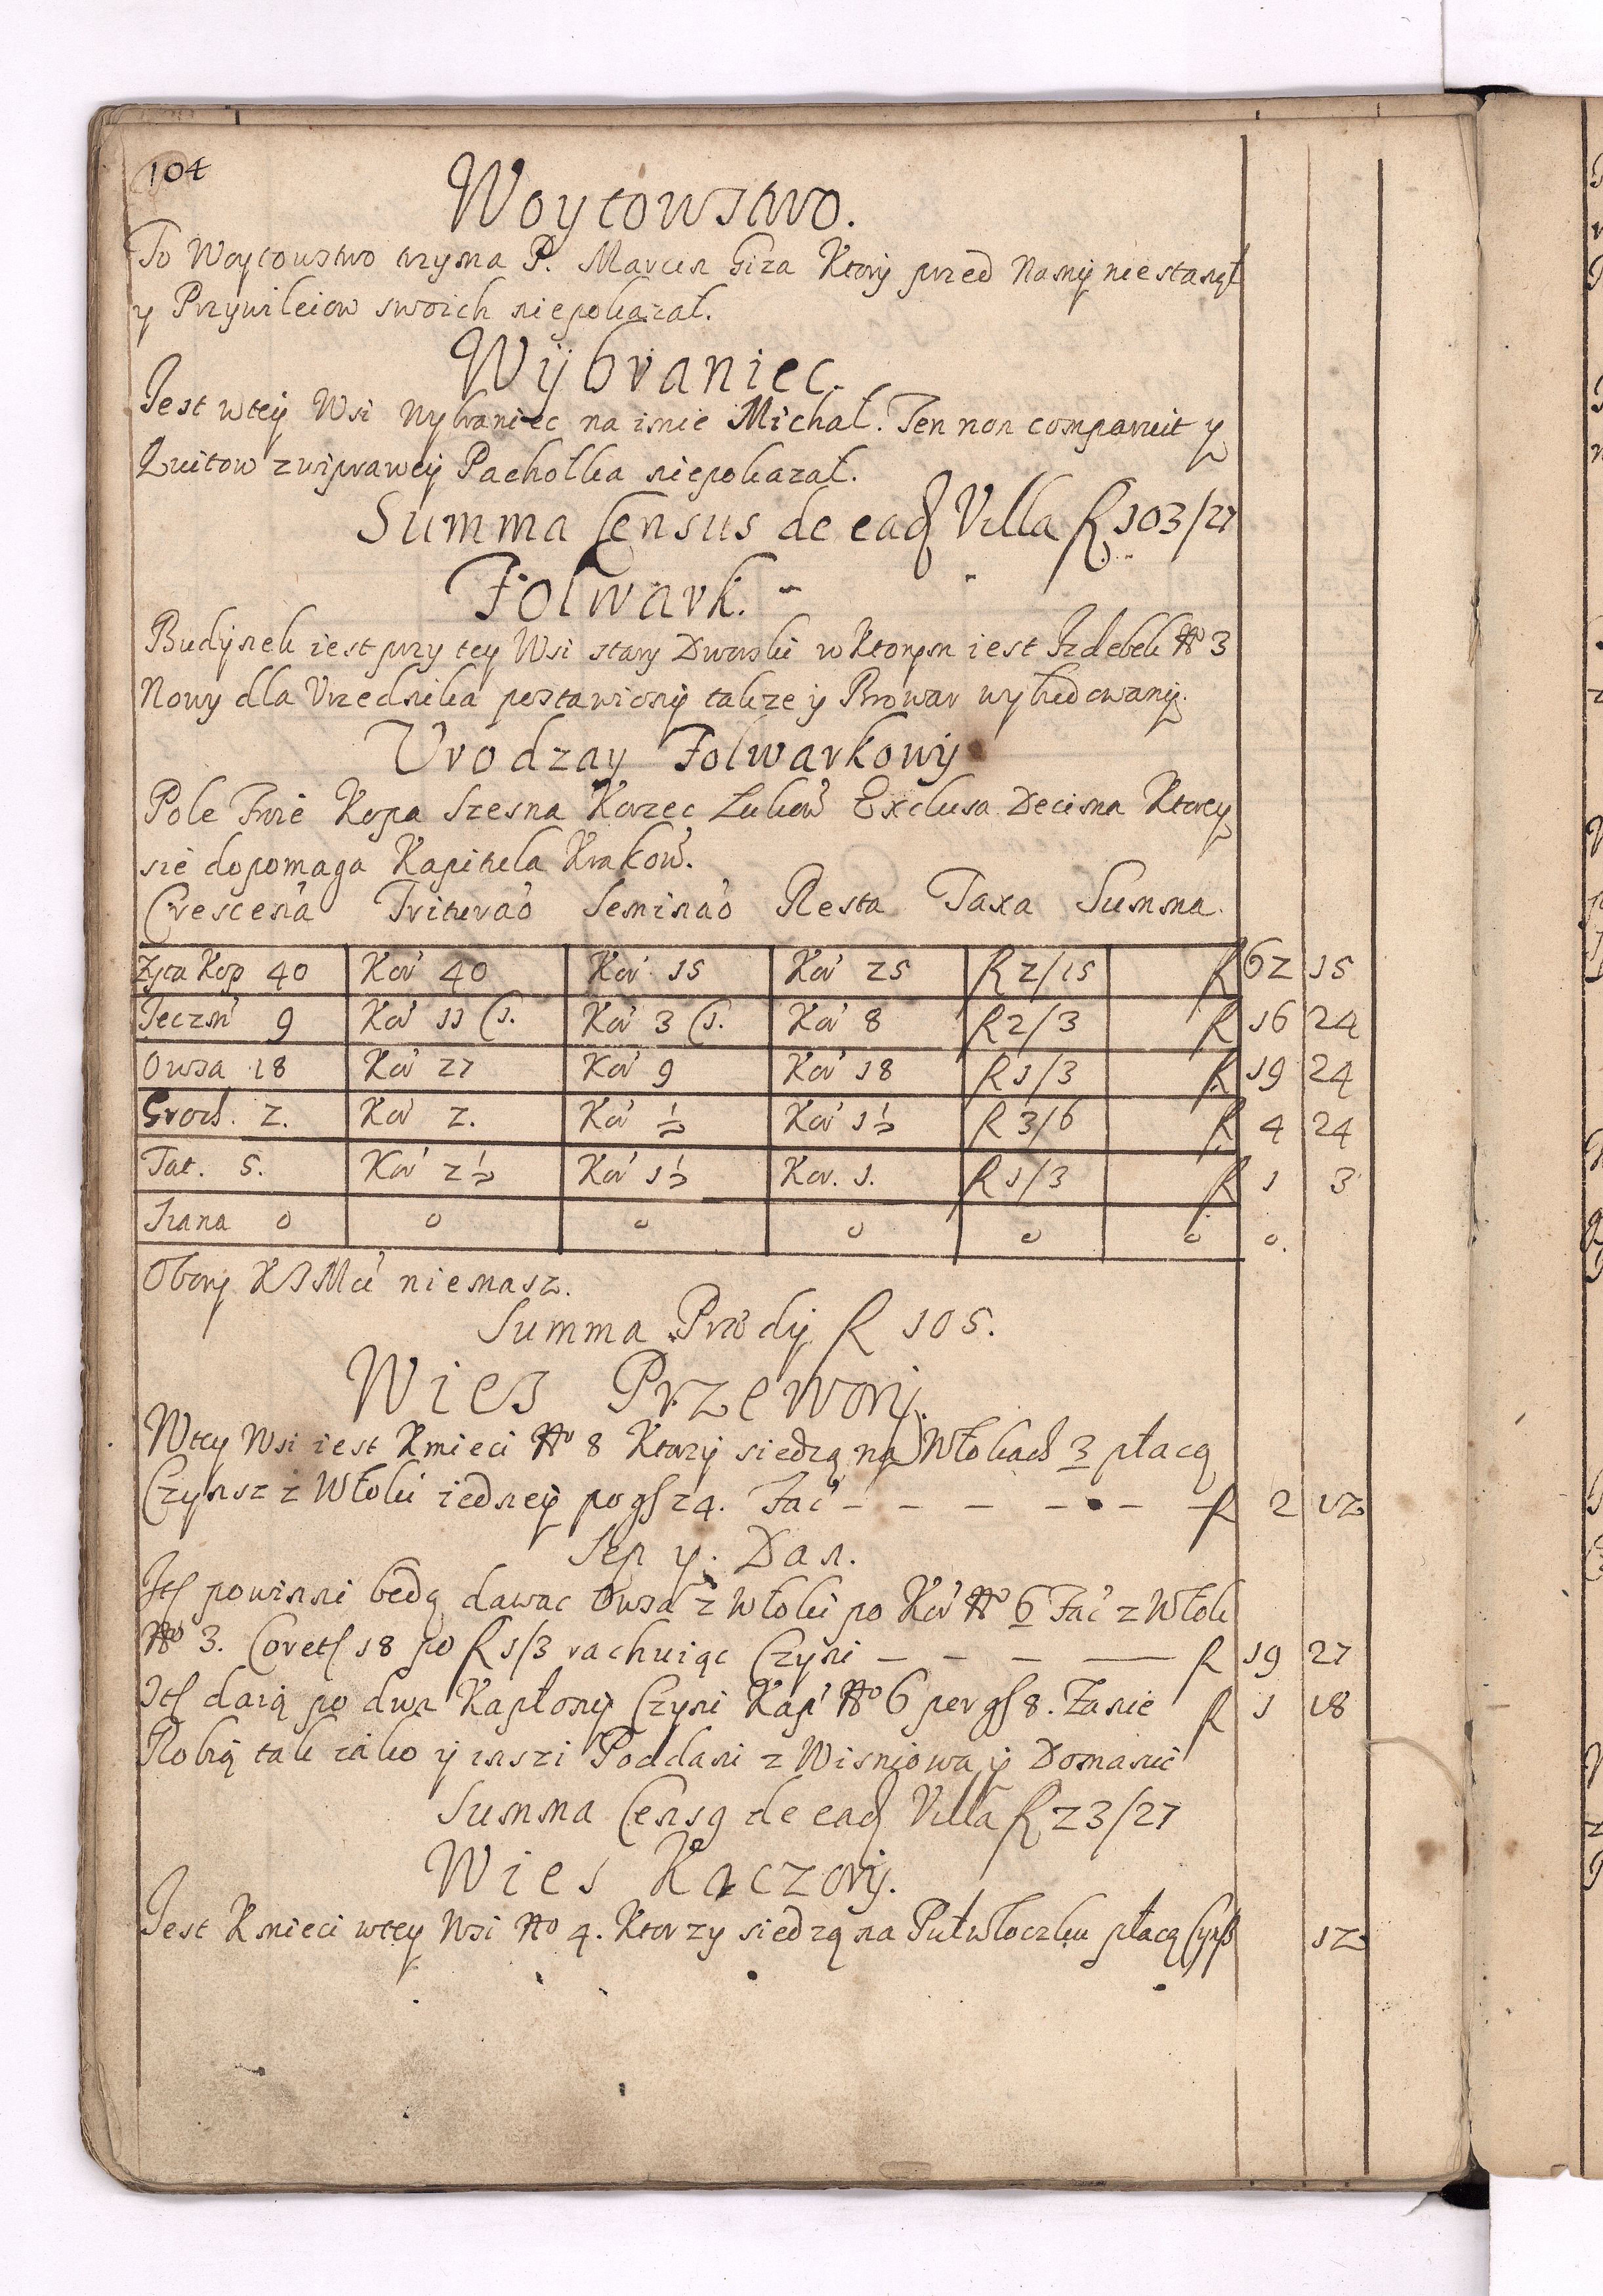 104
Woytowstwo.
To Woytowstwo trzyma P. Marcin Giza Ktory przed Namy niestanął
y Przywileiow swoich niepokazał.
Wybraniec.
Jest wtey Wsi Wybraniec na imie Michał. Ten non comparuit y
Kwitow zwiprawey Pachołka niepokazał.
Summa Census de ead Villa f 103/27
Folwark.
Budynek iest przy tey Wsi stary Dworski w Ktorym iest Izdebek No 3
Nowy dla Vrzednika postawiony takze y Browar wybudowany.
Vrodzay Folwarkowy
Pole Kopa Korzec Exclusa Decima Ktorey
sie dopomaga Kapitula Krakow.
Crescena Triturao Seminao Resta Taxa Summa.
Zyta Kop 40 Kor 40 Kor 15 Kor 25 f 2/15 f 62 15
Jeczm 9 Kor 11 C1. Kor 3 C1. Kor 8 f 2/3 f 16 24
Owsa 18 Kor 27 Kor 9 Kor 18 f 1/3 f 19 24
Groch. 2. Kor 2. Kor ½ Kor 1½ f 3/6 f 4 24
Tat. 5. Kor 2½ Kor 1½ Kor. 1. f 1/3 f 1 3
Siana 0 0 0 0 0 0 0.
Obory KJMci niemasz.
Summa f 105.
Wies Przewory.
Wtey Wsi iest Kmieci No 8 Ktorzy siedzą na Włokach 3 płacą
Czynsz z Włoki iedney po gs 24. Fac – – – – – – f 2 12
Sep y Dan.
It powinni bedą dawac Owsa z Włoki po Kor No 6 Fac z Włok
No 3. Coret 18 po f 1/3 rachuiąc Czyni – – – – f 19 27
It daią po dwa Kapłony Czyni Kap No 6 per gs 8. Zanie f 1 18
Robią tak iako y inszi Poddani z Wisniowa y Domanie
Summa Censq de ead Villa f 23/27
Wies Kaczory.
Jest Kmieci wtey Wsi No 4. Ktorzy siedzą na Pułwłoczku płacą Czynsz 12